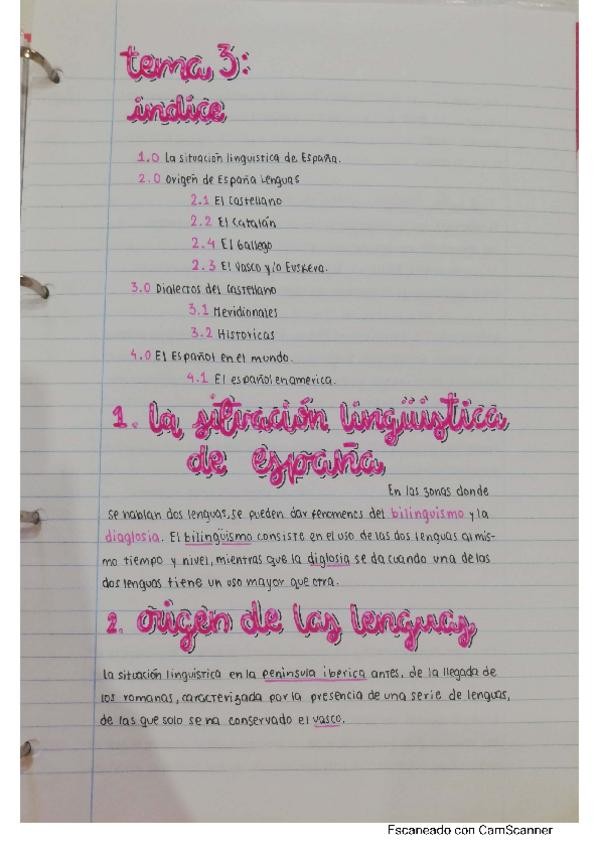 tema 3:
índice
1.0 La situación linguistica de España.
2.0 Origen de España Lenguas
2.1 El Castellano
2.2 El Catalán
2.4 El Gallego
2.3 El Vasco y/o Euskera.
3.0 Dialectos del castellano
3.1 Meridionales
3.2 Historicas
4.0 El Español en el mundo.
4.1 El español en america.
1. la situación lingüística
de españa
En las zonas donde
se hablan dos lenguas, se pueden dar fenomenos del bilinguismo y la
diaglosia. El bilingüismo consiste en el uso de las dos lenguas al mis-
mo tiempo y nivel, mientras que la diglosia se da cuando una de las
dos lenguas tiene un uso mayor que otra.
2. origen de las lenguas
La situación linguistica en la peninsula iberica antes, de la llegada de
los romanas, caracterizada por la presencia de una serie de lenguas,
de las que solo se ha conservado el vasco.
Escaneado con CamScanner